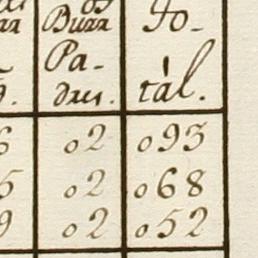 os
Burr
Pa-
dres.
To-
tàl.
6 02 093
5 02 068
9 02 052